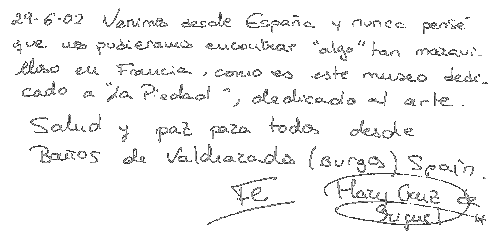 29-6-02 Venimos desde España y nunca pensé
que nos pudieramos encontrar "algo" tan maravi-
lloso en Francia, como es este museo dedi-
cado a "la Piedad", dedicado al arte.
Salud y paz para todos desde
Barrios de Valdearados (Burgos) Spain.
Fe Mary Cruz de
Miguel